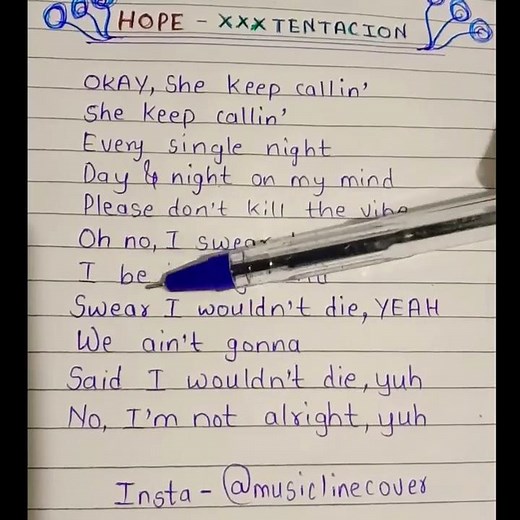 HOPE - XXXTENTACION
OKAY, She keep callin'
She keep callin'
Every single night
Day & night on my mind
Please don't kill the vibe
Oh no, I swear
I be
Swear I wouldn't die, YEAH
We ain't gonna
Said I wouldn't die, yuh
No, I'm not alright, yuh
Insta - @musiclinecover